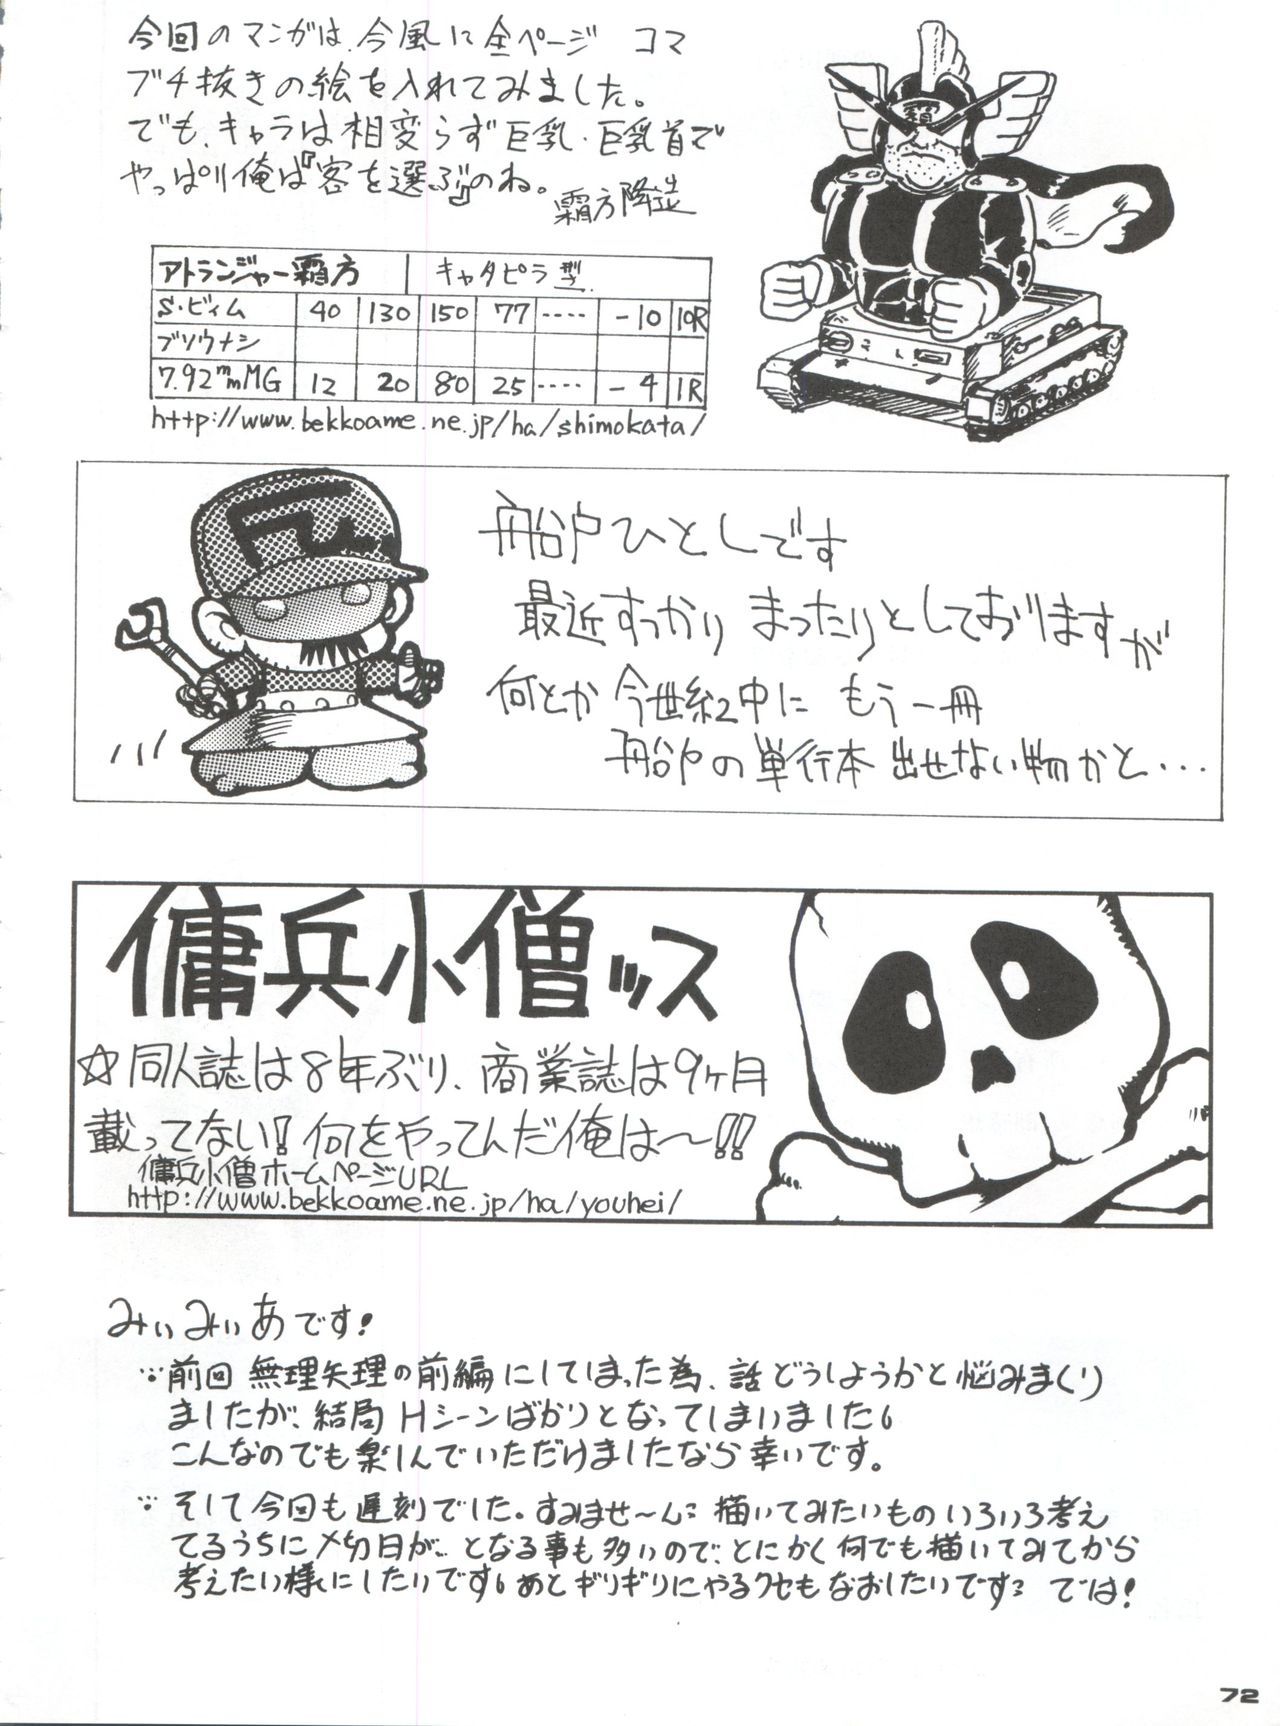 今回のマンガは、今風に全ページ コマ
ブチ抜きの絵を入れてみました。
でも、キャラは相変らず巨乳・巨乳首で
やっぱり俺は『客を選ぶ』のね。
霜方降造
覇
アトランジャー霜方 キャタピラ型
S・ビィム 40 130 150 77 ‥‥ -10 10R
ブソウナシ
7.92mmMG 12 20 80 25 ‥‥ -4 1R
http://www.bekkoame.ne.jp/ha/shimokata/
船戸ひとしです
最近すっかり まったりとしておりますが
何とか 今世紀中に もう一冊
船戸の単行本 出せない物かと・・・
傭兵小僧ッス
☆同人誌は8年ぶり、商業誌は9ヶ月
載ってない!何をやってんだ俺は〜!!
傭兵小僧ホームページURL
http://www.bekkoame.ne.jp/ha/youhei/
みぃみぃあです!
前回 無理矢理の前編にしてしまった為、話どうしようかと悩みまくり
ましたが、結局 Hシーンばかりとなってしまいました。
こんなのでも楽しんでいただけましたなら幸いです。
そして今回も遅刻でした。すみませ〜ん 描いてみたいもの いろいろ考え
てるうちに〆切日が、となる事も多いので、とにかく何でも描いてみてから
考えたい様にしたいです。あとギリギリにやるクセもなおしたいです では!
72